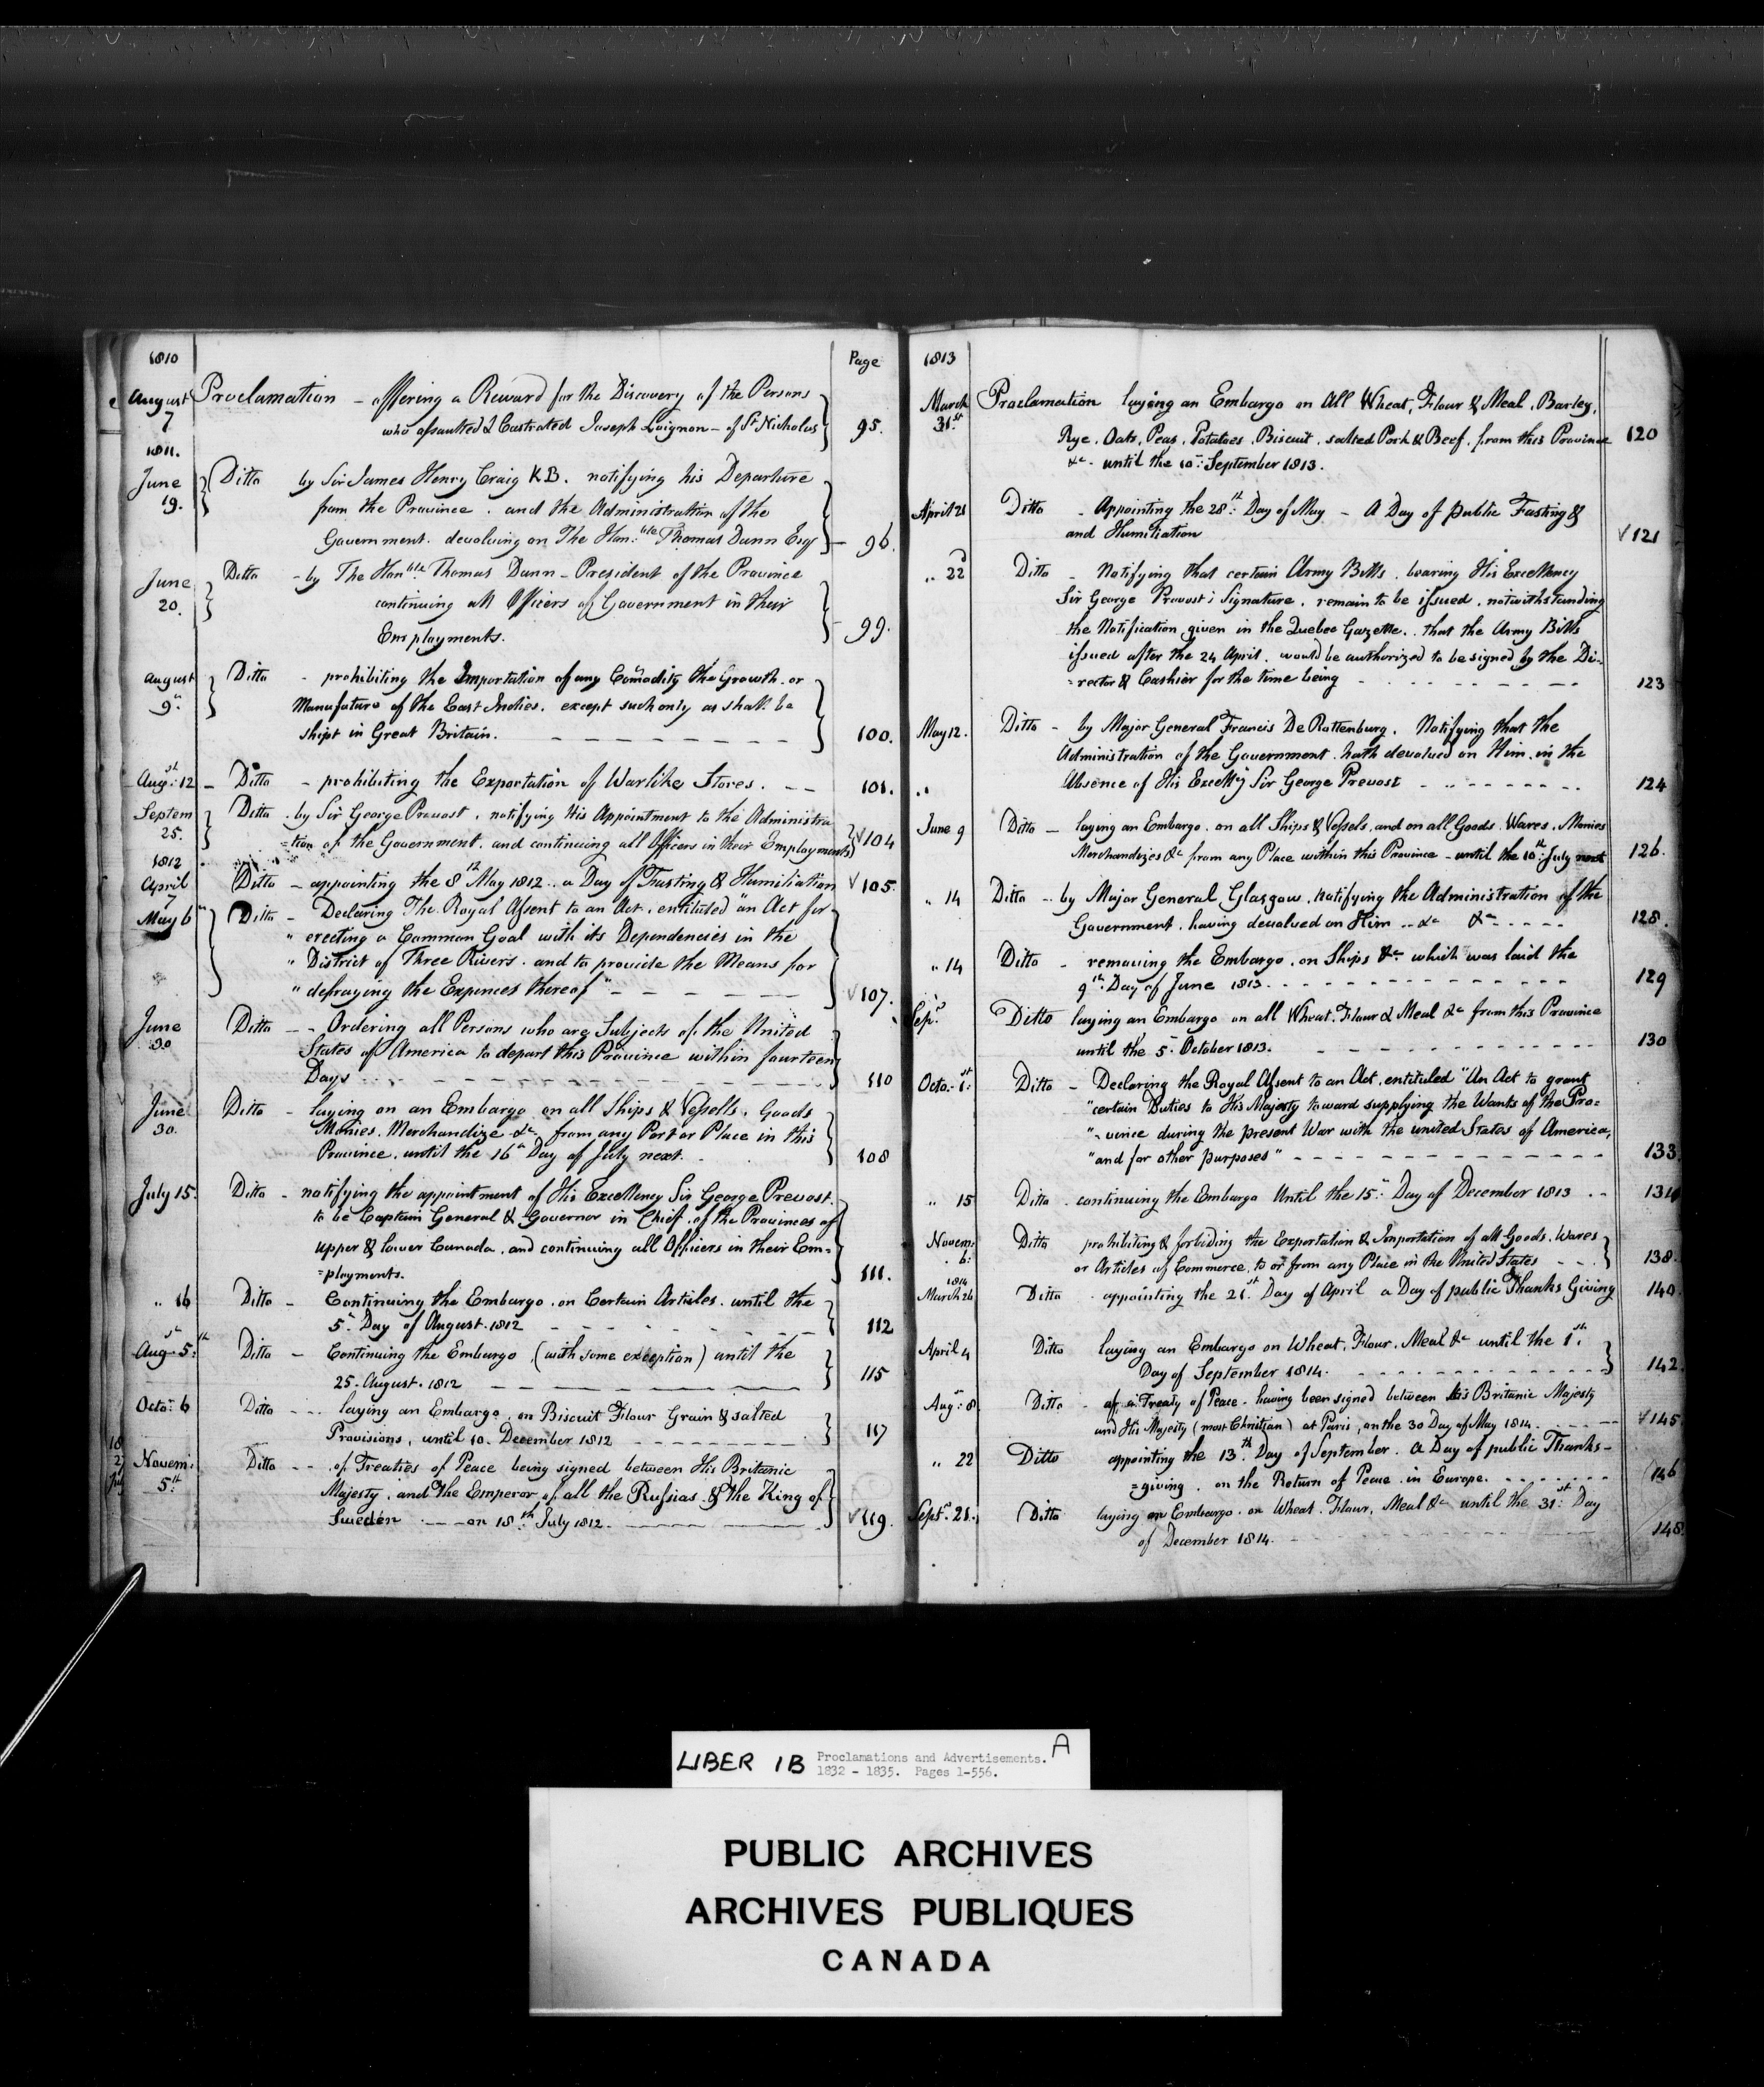 1810
Page
August 7 Proclamation - offering a Reward for the Discovery of the Persons
who assaulted & Castrated Joseph Loignon - of St Nicholas 95.
1811.
June 19. Ditto by Sir James Henry Craig K.B. notifying his Departure
from the Province. and the Administration of the
Government. devolving on The Hon:ble Thomas Dunn Esqr 96.
June 20. Ditto - by The Honble Thomas Dunn - President of the Province
continuing all Officers of Government in their
Employments. 99.
August 9th Ditto - prohibiting the Importation of any Comodity the Growth or
Manufature of the East Indies. except such only as shall be
shipt in Great Britain. 100.
Augst: 12 - Ditto - prohibiting the Exportation of Warlike Stores. 101.
Septem 25. Ditto. by Sir George Prevost, notifying His Appointment to the Administra
=tion of the Government. and continuing all Officers in their Employments √104
1812
April 7 Ditto - appointing the 8th May 1812.. a Day of Fasting & Humiliation √105.
May 6 Ditto - Declaring The Royal Assent to an Act. entituled "an Act for
" erecting a Common Goal with its Dependencies in the
" District of Three Rivers. and to provide the Means for
" defraying the Expences thereof" √107.
June 30 Ditto - - Ordering all Persons who are Subjects of the United
States of America to depart this Province within fourteen
Days 110
June 30. Ditto - laying on an Embargo on all Ships & Vessells. Goods
Monies. Merchandize &c from any Port or Place in this
Province. until the 16th Day of July next. 108
July 15. Ditto - notifying the appointment of His Excellency Sir George Prevost.
to be Captain General & Governor in Chief. of the Provinces of
upper & lower Canada. and continuing all Officers in their Em=
=ployments. 111.
" 16 Ditto - Continuing the Embargo. on Certain Articles. until the
5th Day of August. 1812 112
Augst 5th Ditto - Continuing the Embargo, (with some exception) until the
25. August. 1812 115
Octor 6 Ditto - - laying an Embargo. on Biscuit Flour Grain & salted
Provisions, until 10. December 1812 117
Novem: 5th Ditto - - of Treaties of Peace being signed between His Britanic
Majesty. and the Emperor of all the Russias & the King of
Sweden - on 18th July 1812. √119.
1813
March 31st Proclamation laying an Embargo on All Wheat, Flour & Meal, Barley,
Rye. Oats, Peas, Potatoes. Biscuit. salted Pork & Beef. from this Province 120
&c. until the 10th September 1813.
April 21 Ditto - Appointing the 28th Day of May - A Day of public Fasting &
and Humiliation √121
" 22d Ditto - Notifying that certain Army Bills. bearing His Excellency
Sir George Prevost's Signature. remain to be issued. notwithstanding
the Notification given in the Quebec Gazette.. that the Army Bills
issued after the 24 April. would be authorized to be signed by the Di-
=rector & Cashier for the time being 123
May 12. Ditto - by Major General Francis De Rottenburg. Notifying that the
Administration of the Government. hath devolved on Him. in the
Absence of His Excelly Sir George Prevost 124
June 9 Ditto - laying an Embargo. on all Ships & Vessels. and on all Goods. Wares. Monies
Merchandizes &c from any Place within this Province - until the 10th July next 126.
" 14 Ditto - by Major General Glasgow. Notifying the Administration of the
Government. having devolved on Him .. &c &c 128.
" 14 Ditto - removing the Embargo. on Ships &c which was laid the
9th Day of June 1813. 129
Sepr. Ditto laying an Embargo on all Wheat. Flour & Meal &c from this Province
until the 5th October 1813. 130
Octo. 1st: Ditto - Declaring the Royal Assent to an Act. entituled "An Act to grant
"certain Duties to His Majesty toward supplying the Wants of the Pro=
"-vince during the present War with the united States of America,
"and for other purposes" 133
" 15 Ditto. continuing the Embargo Until the 15th Day of December 1813
Novem: 6: Ditto prohibiting & forbiding the Exportation & Importation of all Goods. Wares
or Articles of Commerce, to or from any Place in the United States 138.
1814
March 26 Ditto - appointing the 21st Day of April a Day of public Thanks Giving 140.
April 4 Ditto laying an Embargo on Wheat. Flour. Meal &c until the 1st.
Day of September 1814. 142.
Augt: 8 Ditto - of a Treaty of Peace - having been signed between His Britanic Majesty
and His Majesty (most Christian) at Paris, on the 30 Day of May 1814. √145
" 22 Ditto appointing the 13th Day of September. a Day of public Thanks-
=giving. on the Return of Peace. in Europe. 146
Septr. 21. Ditto laying an Embargo. on Wheat. Flour, Meal &c until the 31st: Day
of December 1814. 148.
LIBER 1B Proclamations and Advertisements. A
1832 - 1835. Pages 1-556.
PUBLIC ARCHIVES
ARCHIVES PUBLIQUES
CANADA